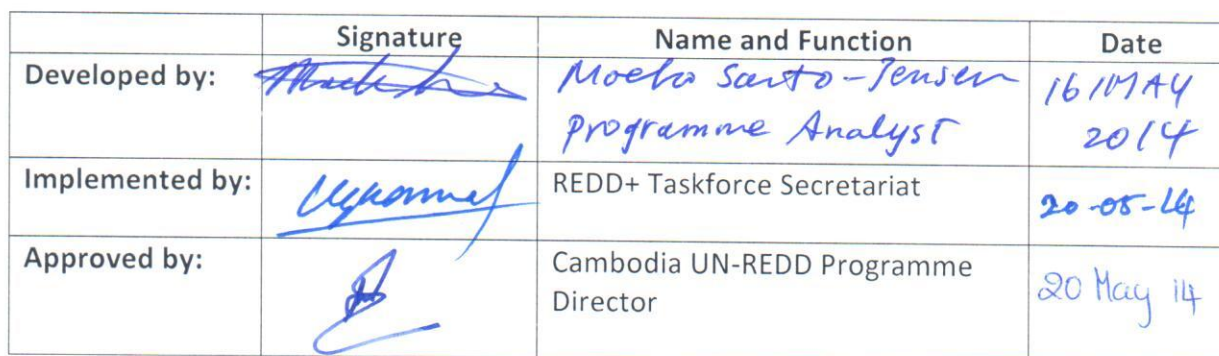 Signature Name and Function Date
Developed by: Moeko Saito-Jensen 16/MAY
Programme Analyst 2014
Implemented by: REDD+ Taskforce Secretariat 20-05-14
Approved by: Cambodia UN-REDD Programme
Director 20 May 14